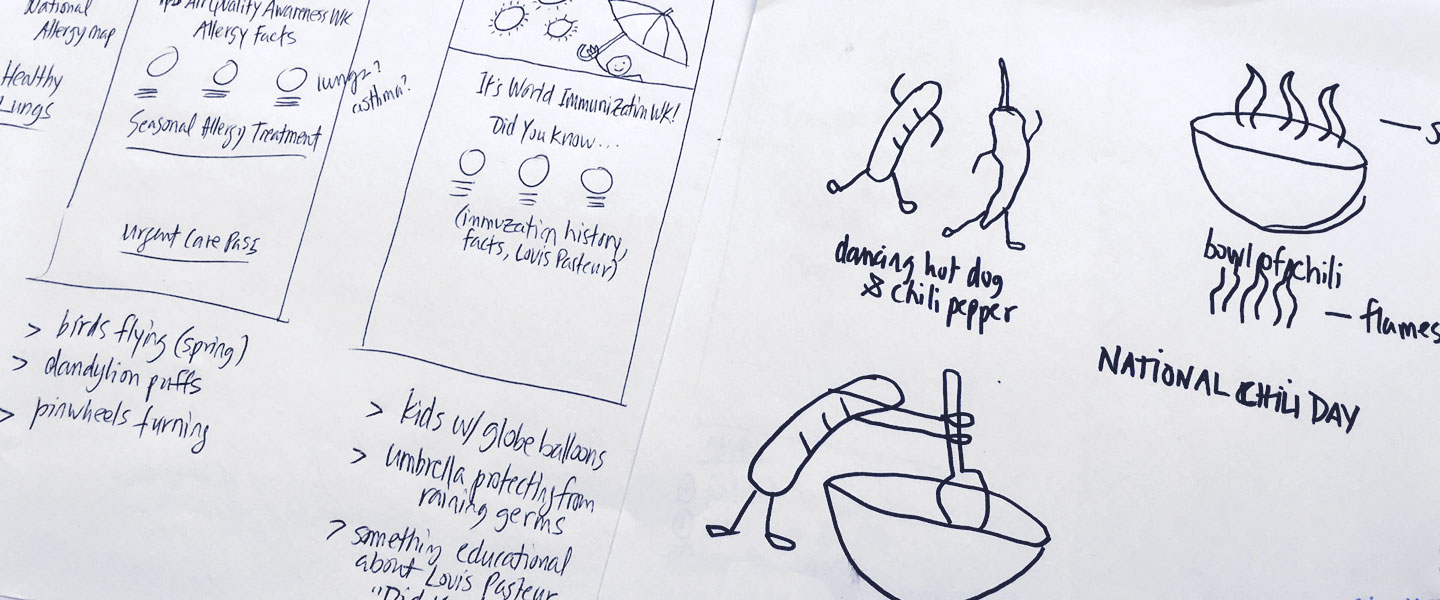 National
Allergy map
Healthy
Lungs
Air Quality Awareness WK
Allergy Facts
lungs?
asthma?
Seasonal Allergy Treatment
Urgent Care
> birds flying (spring)
> dandylion puffs
> pinwheels turning
It's World Immunization WK!
Did You Know...
(immuzation history,
facts, Louis Pasteur)
> kids w/ globe balloons
> umbrella protecting from
raining germs
> something educational
about Louis Pasteur
dancing hot dog
& chili pepper
bowl of chili
— flames
NATIONAL CHILI DAY